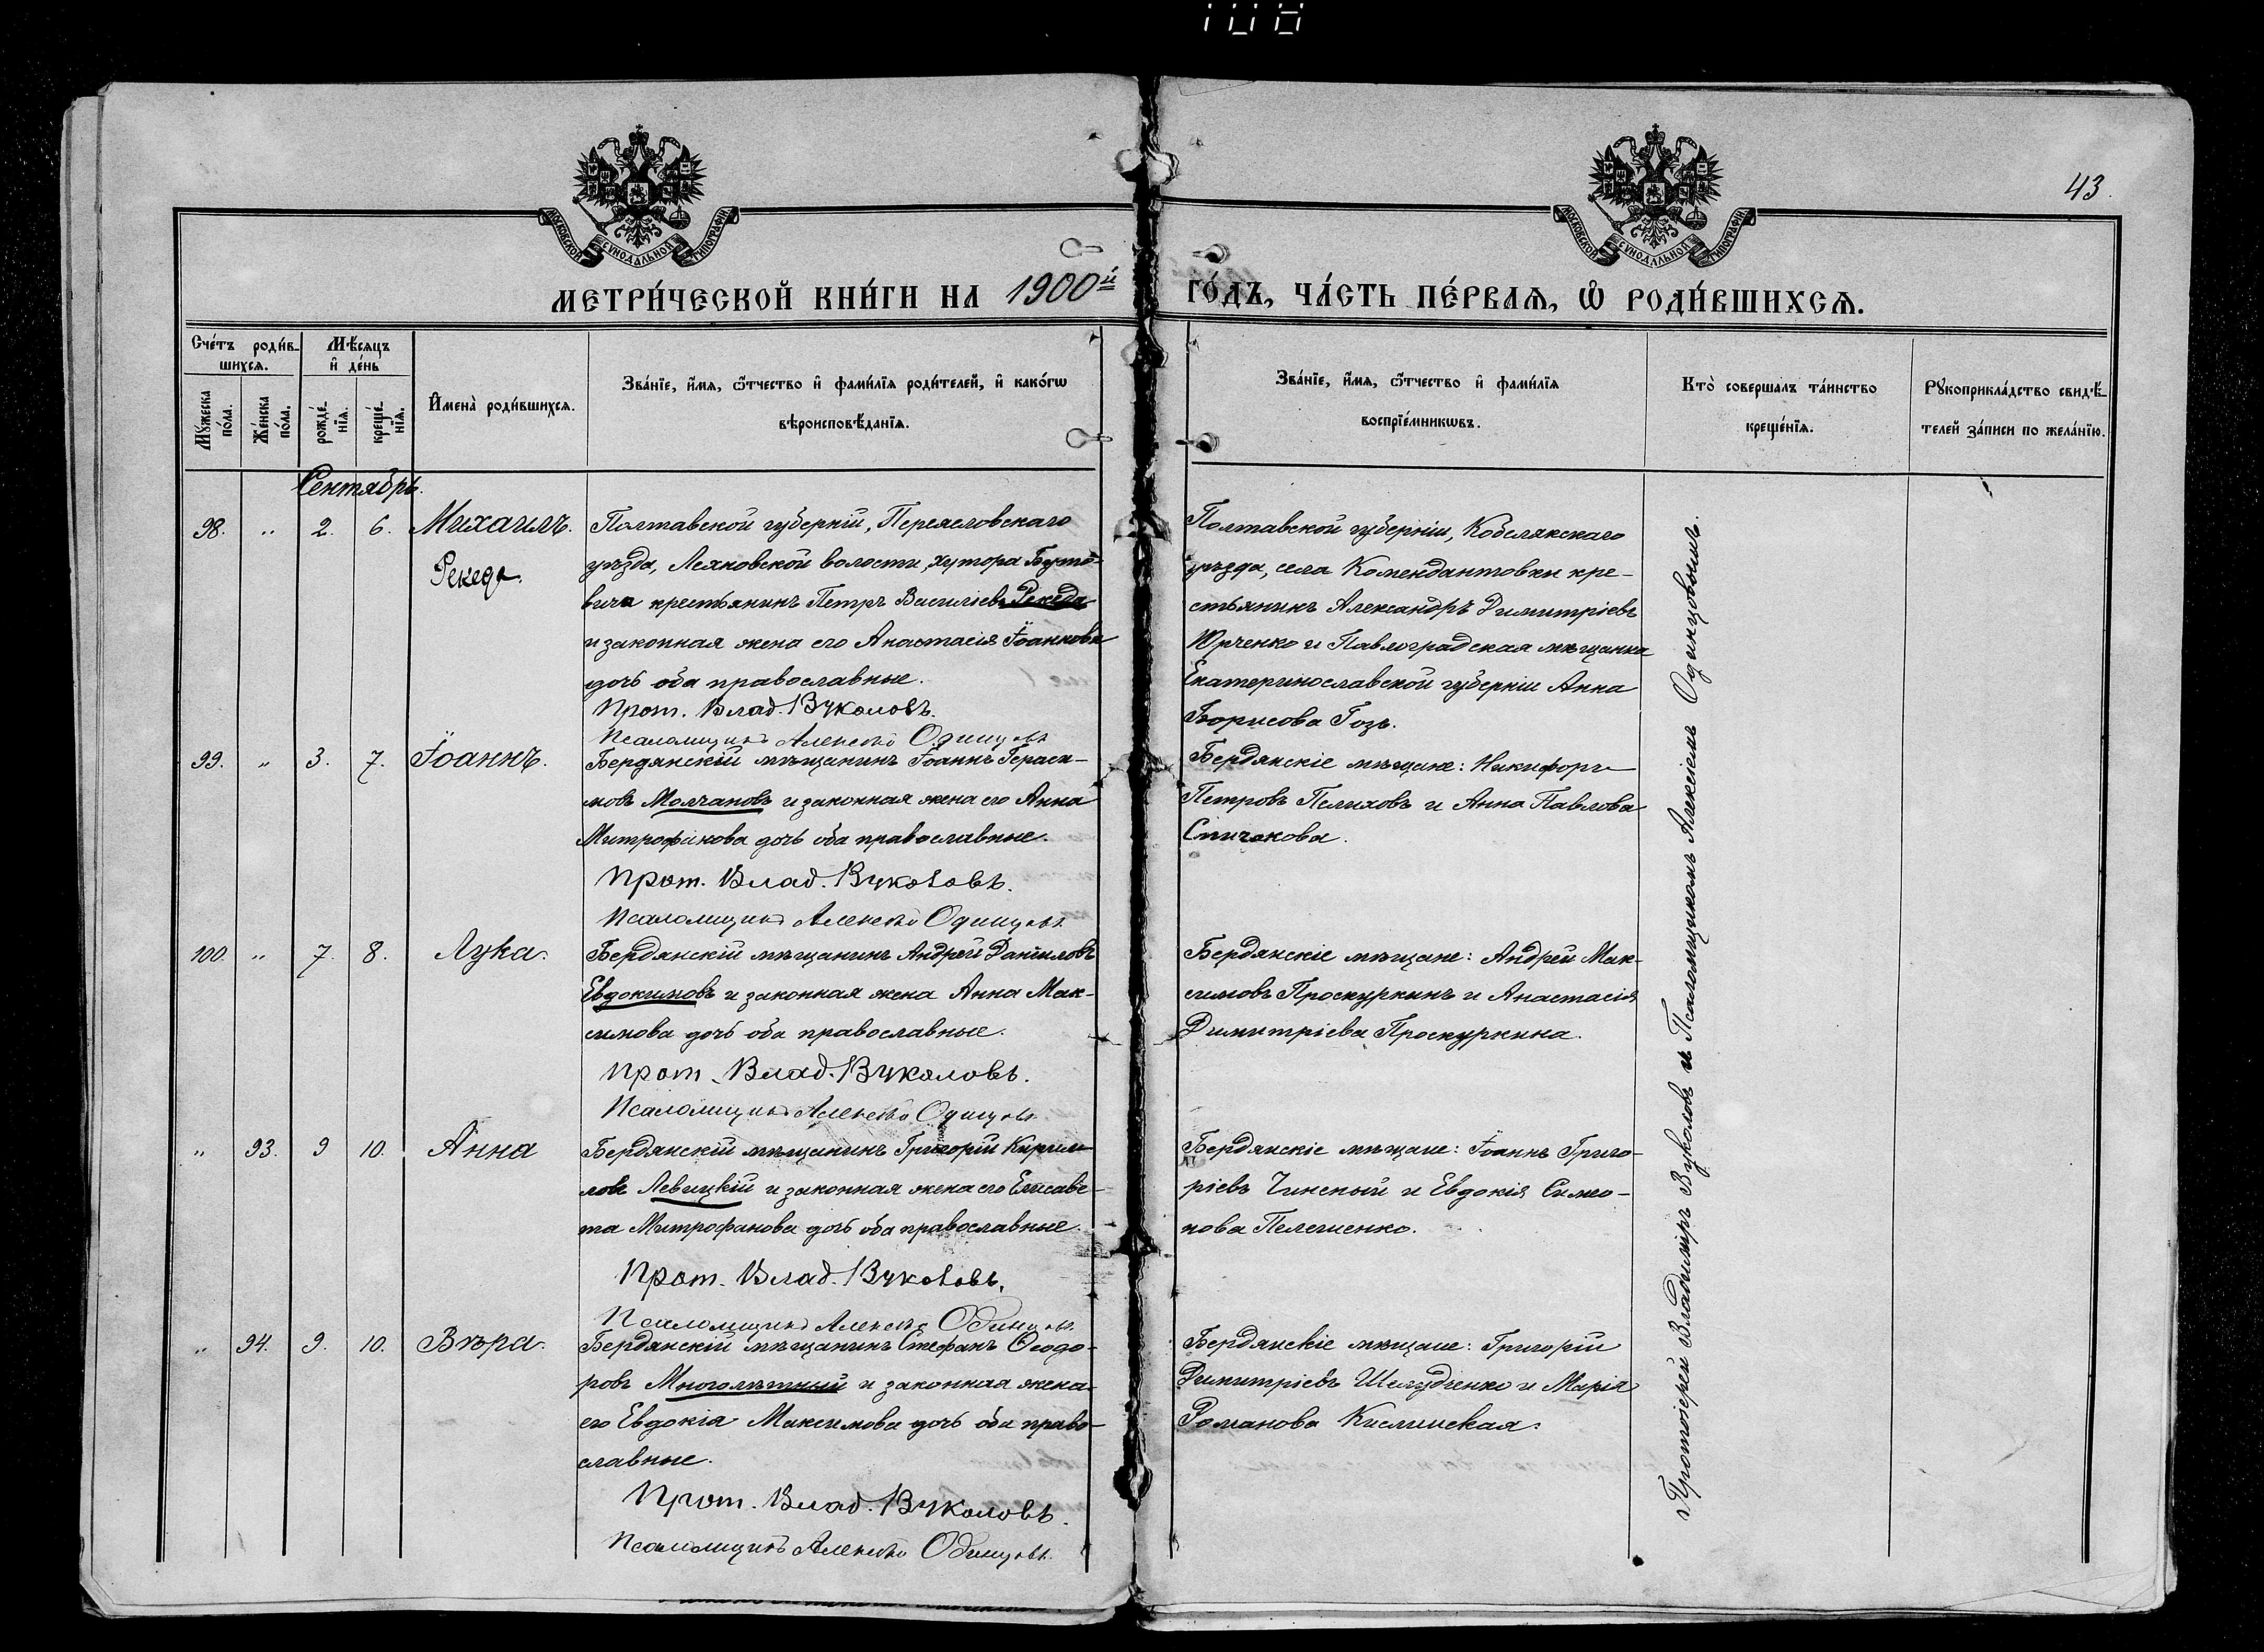 108
43.
МОСКОВСКОЙ СѴНОДАЛЬНОЙ ТИПОГРАФІИ
МОСКОВСКОЙ СѴНОДАЛЬНОЙ ТИПОГРАФІИ
МЕТРИ́ЧЕСКОЙ КНИ́ГИ НА 1900й ГО́ДЪ, ЧА́СТЬ ПЕ́РВАЯ, Ѽ РОДИ́ВШИХСѦ.
Сче́тъ роди́в-
шихсѧ.
Мѣ́сяцъ
и҆ де́нь
Мꙋ́жеска
по́ла.
Же́нска
по́ла.
рожде́-
нїѧ.
креще́-
нїѧ.
И҆мена̀ роди́вшихсѧ.
Зва́нїе, и҆́мѧ, ѻ҆́тчество и҆ фами́лїѧ роди́телей, и҆ како́гѡ
вѣроисповѣ́данїѧ.
Зва́нїе, и҆́мѧ, ѻ҆́тчество и҆ фами́лїѧ
воспрїе́мникѡвъ.
Кто̀ соверша́лъ та́инство
креще́нїѧ.
Рꙋкоприкла́дство свидѣ́-
телей за́писи по жела́нїю.
Сентябрь.
98. " 2. 6. Михаилъ.
Рекеда.
Полтавской губерніи, Переяславскаго
уѣзда, Леляковской волости, хутора Буто-
вича крестьянинъ Петръ Василіевъ Рекеда
и законная жена его Анастасія Іоаннова
дочь оба православные.
Прот. Влад. Вуколовъ.
Псаломщикъ Алексѣй Одинцовъ
Полтавской губерніи, Кобелякскаго
уѣзда, села Комендантовки кре-
стьянинъ Александръ Димитріевъ
Юрченко и Павлоградская мѣщанка
Екатеринославской губерніи Анна
Борисова Гозъ.
99. " 3. 7. Іоаннъ.
Бердянскій мѣщанинъ Іоаннъ Гераси-
мовъ Молчановъ и законная жена его Анна
Митрофанова дочь оба православные.
Прот. Влад. Вуколовъ.
Псаломщикъ Алексѣй Одинцовъ
Бердянскіе мѣщане: Никифоръ
Петровъ Пелиховъ и Анна Павлова
Спичакова.
100. " 7. 8. Лука.
Бердянскій мѣщанинъ Андрей Даніиловъ
Евдокимовъ и законная жена Анна Мак-
симова дочь оба православные.
Прот. Влад. Вуколовъ.
Псаломщикъ Алексѣй Одинцовъ
Бердянскіе мѣщане: Андрей Мак-
симовъ Проскуркинъ и Анастасія
Димитріева Проскуркина.
" 93. 9 10. Анна
Бердянскій мѣщанинъ Григорій Кирил-
ловъ Левицкій и законная жена его Елисаве-
та Митрофанова дочь оба православные.
Прот. Влад. Вуколовъ.
Псаломщикъ Алексѣй Одинцовъ
Бердянскіе мѣщане: Іоаннъ Григо-
ріевъ Чинский и Евдокія Симео-
нова Пелешенко.
" 94. 9. 10. Вѣра.
Бердянскій мѣщанинъ Стефанъ Ѳеодо-
ровъ Многолѣтный и законная жена
его Евдокія Максимова дочь оба право-
славные.
Прот. Влад. Вуколовъ.
Псаломщикъ Алексѣй Одинцовъ
Бердянскіе мѣщане: Григорій
Димитріевъ Шелудченко и Марія
Романова Кислинская.
Протоіерей Владиміръ Вуколовъ и Псаломщикомъ Алексіемъ Одинцовымъ.